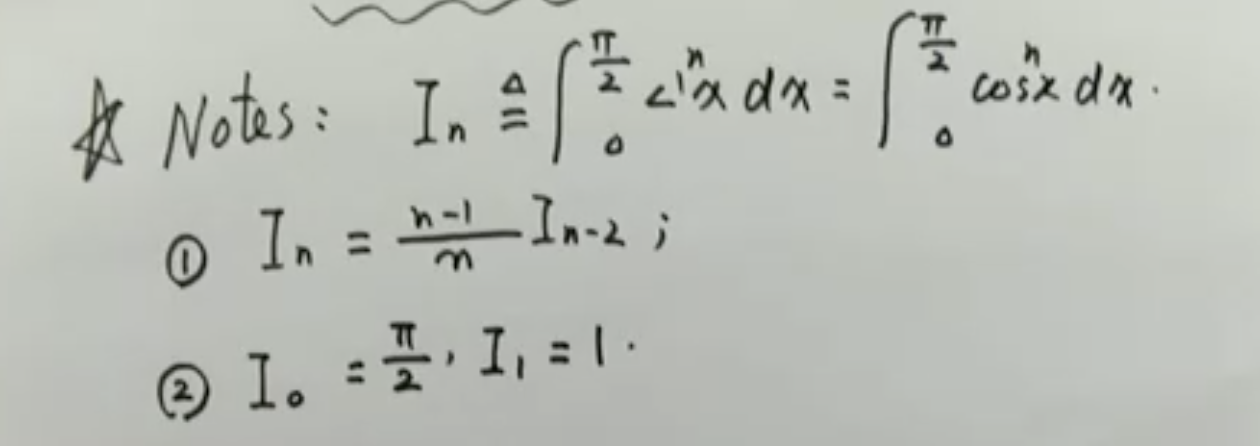 ☆ Notes: Iₙ ≜ ∫₀^(π/2) sinⁿx dx = ∫₀^(π/2) cosⁿx dx.
① Iₙ = (n-1)/n Iₙ₋₂ ;
② I₀ = π/2, I₁ = 1.